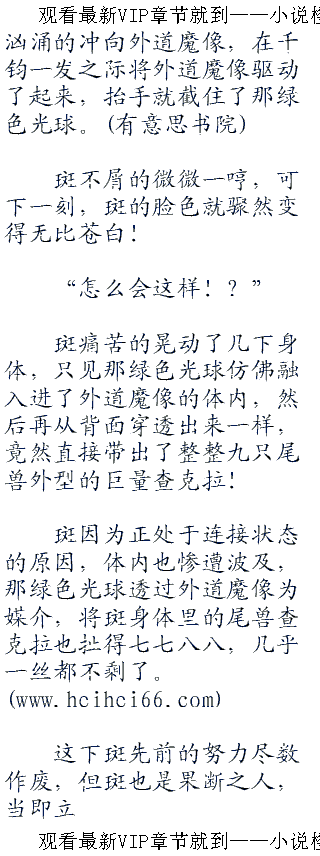 观看最新VIP章节就到——小说检
汹涌的冲向外道魔像，在千
钧一发之际将外道魔像驱动
了起来，抬手就截住了那绿
色光球。(有意思书院)
斑不屑的微微一哼，可
下一刻，斑的脸色就骤然变
得无比苍白！
“怎么会这样！？”
斑痛苦的晃动了几下身
体，只见那绿色光球仿佛融
入进了外道魔像的体内，然
后再从背面穿透出来一样，
竟然直接带出了整整九只尾
兽外型的巨量查克拉！
斑因为正处于连接状态
的原因，体内也惨遭波及，
那绿色光球透过外道魔像为
媒介，将斑身体里的尾兽查
克拉也扯得七七八八，几乎
一丝都不剩了。
(www.hcihci66.com)
这下斑先前的努力尽数
作废，但斑也是果断之人，
当即立
观看最新VIP章节就到——小说检